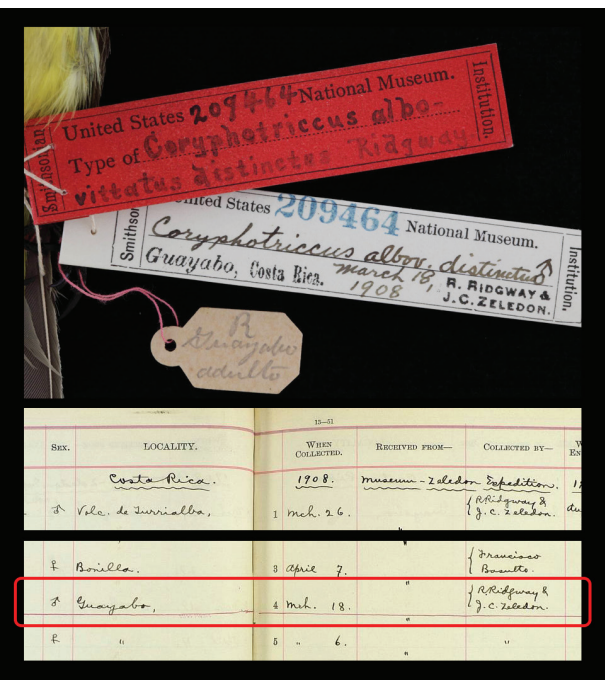 United States 209464 National Museum.
Type of Coryphotriccus albo-
vittatus distinctus Ridgway
Smithsonian
Institution.
United States 209464 National Museum.
Coryphotriccus albov. distinctus ♂
Guayabo, Costa Rica. March 18,
1908
R. RIDGWAY &
J. C. ZELEDON.
Smithson
Institution.
R
Guayabo
adulto
15—51
SEX. LOCALITY. WHEN COLLECTED. RECEIVED FROM— COLLECTED BY—
Costa Rica. 1908. Museum-Zeledon Expedition.
♂ Volc. de Turrialba, 1 Mch. 26. " { R. Ridgway & J. C. Zeledon.
♀ Bonilla. 3 April 7. " { Francisco Basulto.
♂ Guayabo, 4 Mch. 18. " { R. Ridgway & J. C. Zeledon.
♀ " 5 " 6. " "